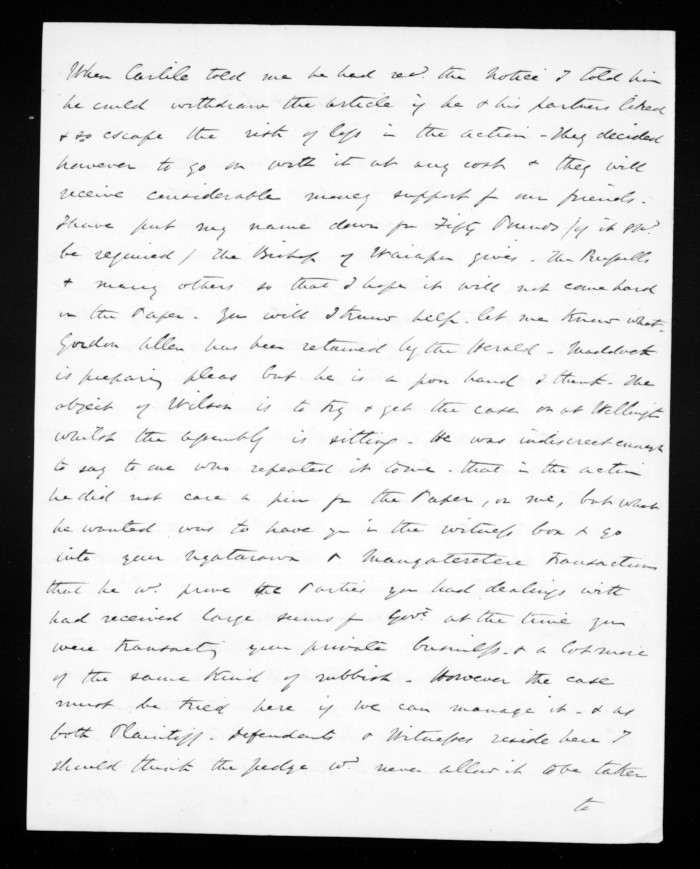 When Carlile told me he had recd. the notice I told him
he could withdraw the article if he & his partners liked
& so escape the risk of loss in the action - They decided
however to go on with it at any cost & they will
receive considerable money support f our friends -
I have put my name down for Fifty Pounds / if it shd.
be required / the Bishop of Waiapu gives - The Russells
& many others so that I hope it will not come hard
on the Paper - You will I know help - let me know what -
Gordon Allen has been retained by the Herald -
is preparing pleas but he is a poor hand I think - The
object of Wilson is to try & get the case on at Wellington
whilst the Assembly is sitting - He was indiscreet enough
to say to one who repeated it to me - that in the action
he did not care a pin for the Paper, or me, but what
he wanted was to have you in the witness box & go
into your Ngatarawa & Mangateretere transactions
that he wd. prove the Parties you had dealings with
had received large sums f Govt. at the time you
were transacting your private business - & a lot more
of the same kind of rubbish - However the case
must be tried here if we can manage it - & as
both Plaintiff - Defendants & Witnesses reside here I
should think the judge wd. never allow it to be taken
to